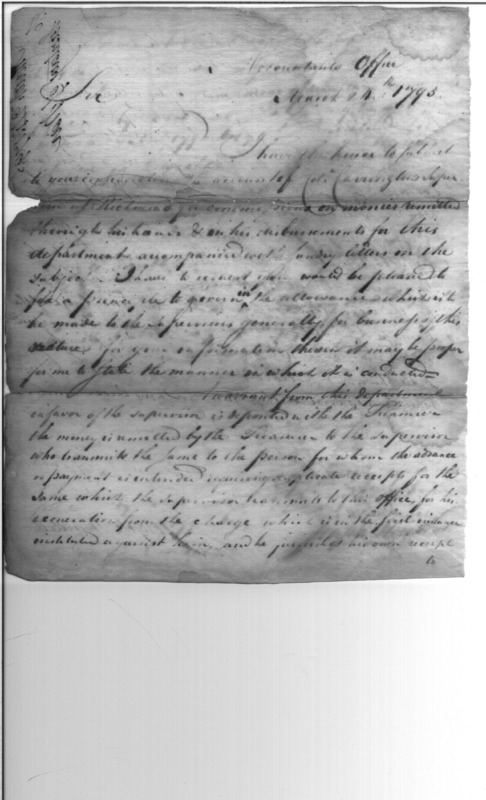 Accountants Office
March 24th 1795.
Sir
I have the honor to submit
to your the account of Col. Carrington Super
for on monies remitted
through his hands & on his disbursements for this
department accompanied with sundry letters on the
subject. I have to request you would be pleased to
fix a principle to govern in the allowance which is to
be made to the supervisors generally for business of this
nature, for your information therein it may be proper
for me to state the manner in which it is conducted
Warrant from this department
in favor of the supervisor is deposited with the Treasurer
the money is remitted by the Treasurer to the supervisor
who transmits the same to the person for whom the advance
or payment is intended duplicate receipts for the
same which the supervisor transmits to this office for his
exoneration from the charge which is in the first instance
instituted against him, and he his own receipt
to